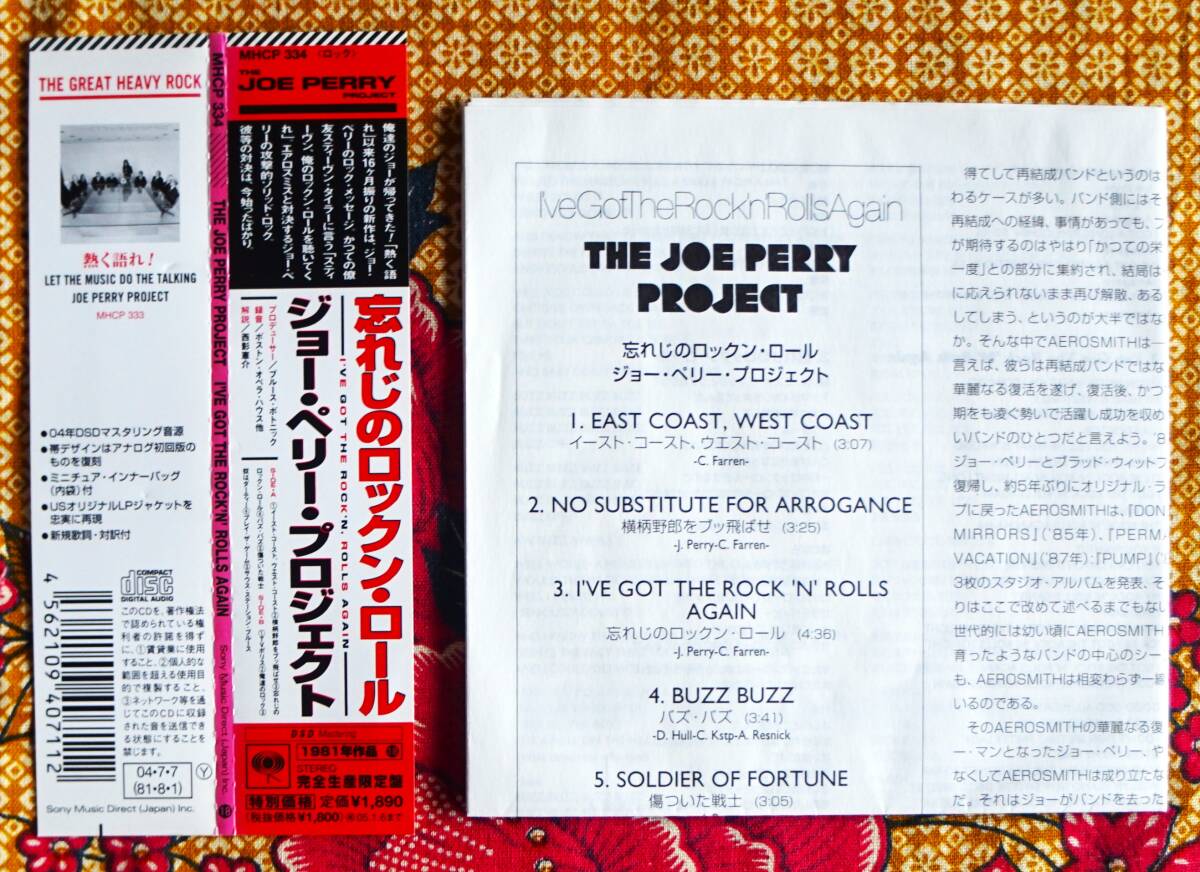 THE GREAT HEAVY ROCK
熱く語れ!
LET THE MUSIC DO THE TALKING
JOE PERRY PROJECT
MHCP 333
●04年DSDマスタリング音源
●帯デザインはアナログ初回版の
ものを復刻
●ミニチュア・インナーバッグ
(内袋)付
●USオリジナルLPジャケットを
忠実に再現
●新規歌詞・対訳付
COMPACT
disc
DIGITAL AUDIO
このCDを、著作権法
で認められている権
利者の許諾を得ず
に、①賃貸業に使用
すること、②個人的な
範囲を超える使用目
的で複製すること、
③ネットワーク等を通
じてこのCDに収録
された音を送信でき
る状態にすることを
禁じます。
4 562109 407112
04・7・7
(81・8・1)
Y
Sony Music Direct (Japan) Inc.
MHCP 334
THE JOE PERRY PROJECT I'VE GOT THE ROCK'N' ROLLS AGAIN
Sony Music Direct (Japan) Inc.
MHCP 334 〈ロック〉
THE
JOE PERRY
PROJECT
俺達のジョーが帰ってきた!「熱く語
れ」以来16ヶ月振りの新作は、ジョー・
ペリーのロック・メッセージ、かつての僚
友スティーヴン・タイラーに言う「スティ
ーヴン、俺のロックン・ロールを聴いてく
れ」。エアロスミスと対決するジョー・ペ
リーの攻撃的ソリッド・ロック。
彼等の対決は、今始ったばかり。
忘れじのロックン・ロール
I'VE GOT THE ROCK'N' ROLLS AGAIN
ジョー・ペリー・プロジェクト
プロデューサー/ブルース・ボトニック
録音/ボストン・オペラ・ハウス他
解説/西影憲介
DSD Mastering
1981年作品
STEREO
完全生産限定盤
特別価格 定価¥1,890
(税抜価格¥1,800) 05.1.6まで
I'veGotTheRock'n'RollsAgain
THE JOE PERRY
PROJECT
忘れじのロックン・ロール
ジョー・ペリー・プロジェクト
1. EAST COAST, WEST COAST
イースト・コースト、ウエスト・コースト (3:07)
-C. Farren-
2. NO SUBSTITUTE FOR ARROGANCE
横柄野郎をブッ飛ばせ (3:25)
-J. Perry-C. Farren-
3. I'VE GOT THE ROCK 'N' ROLLS
AGAIN
忘れじのロックン・ロール (4:36)
-J. Perry-C. Farren-
4. BUZZ BUZZ
バズ・バズ (3:41)
-D. Hull-C. Kstp-A. Resnick
5. SOLDIER OF FORTUNE
傷ついた戦士 (3:05)
得てして再結成バンドというのは
わるケースが多い。バンド側にはそ
再結成への経緯、事情があっても、フ
が期待するのはやはり「かつての栄
一度」との部分に集約され、結局は
に応えられないまま再び解散、ある
してしまう、というのが大半ではな
か。そんな中でAEROSMITHは一
言えば、彼らは再結成バンドではな
華麗なる復活を遂げ、復活後、かつ
期をも凌ぐ勢いで活躍し成功を収め
いバンドのひとつだと言えよう。'8
ジョー・ペリーとブラッド・ウィットフ
復帰し、約5年ぶりにオリジナル・ラ
プに戻ったAEROSMITHは、『DON
MIRRORS』('85年)、『PERMA
VACATION』('87年)、『PUMP』('
3枚のスタジオ・アルバムを発表、そ
りはここで改めて述べるまでもない
世代的には幼い頃にAEROSMITH
育ったようなバンドの中心のシー
も、AEROSMITHは相変わらず一線
いるのである。
そのAEROSMITHの華麗なる復
ー・マンとなったジョー・ペリー、や
なくしてAEROSMITHは成り立たな
だ。それはジョーがバンドを去った